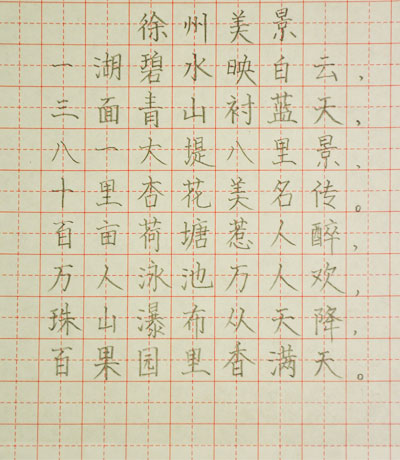 徐州美景
一湖碧水映白云,
三面青山衬蓝天,
八一大堤八里景、
十里杏花美名传。
百亩荷塘惹人醉,
万人泳池万人欢,
珠山瀑布从天降,
百果园里香满天。